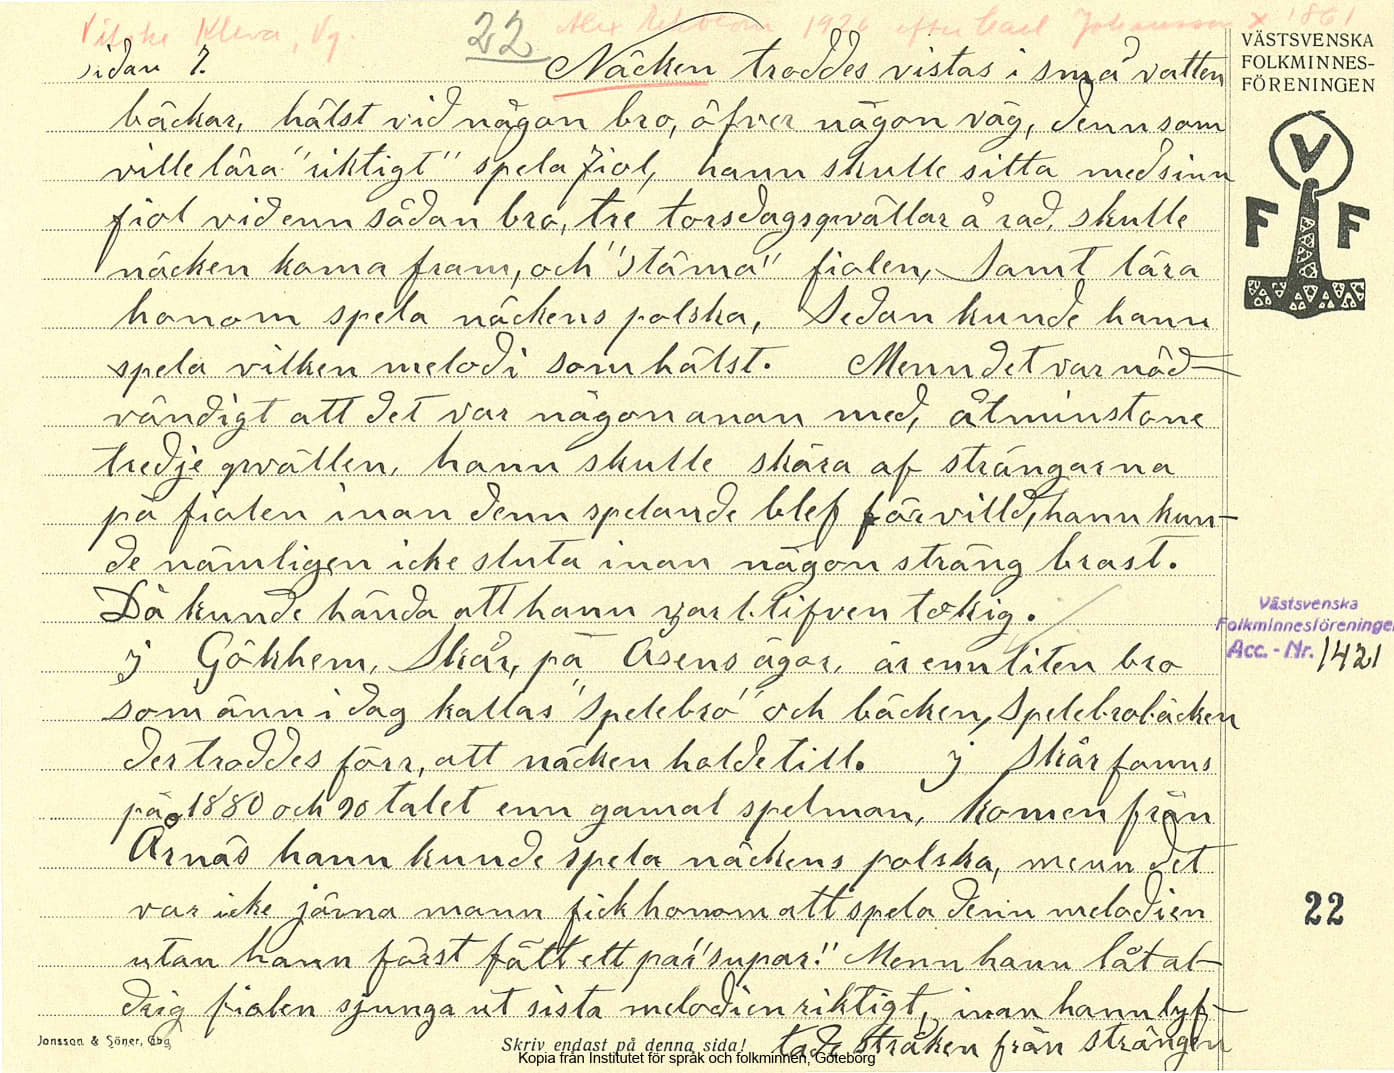 Vilske Kleva, Vg. 22 1926 efter Carl Johansson x 1861
sidan 7. Näcken troddes vistas i små vatten
bäckar, hälst vid någon bro, öfver någon väg, denn som
ville lära "riktigt" spela fiol, hann skulle sitta med sinn
fiol vid enn sådan bro, tre torsdagsqwällar å rad, skulle
näcken koma fram, och "stäma" fiolen, Samt lära
honom spela näckens polska, Sedan kunde hann
spela vilken melodi som hälst. Menn det var nöd-
vändigt att det var någon anan med, åtminstone
tredje qwällen, hann skulle skära af strängarna
på fiolen inan denn spelande blef förvilld, hann kun-
de nämligen icke sluta inan någon sträng brast.
Då kunde hända att hann var blifven tokig.
J Gökhem, Skår, på Åsens ägor, är enn liten bro
som änn i dag kallas "Spelebro" och bäcken, Spelebrobäcken
der troddes förr, att näcken holde till. J Skår fanns
på 1880 och 90 talet enn gamal spelman, komen från
Årnäs hann kunde spela näckens polska, menn det
var icke järna mann fick honom att spela denn melodien
utan hann först fått ett par "supar!" Menn hann låt al-
drig fiolen sjunga ut sista melodien riktigt, inan hann lyf-
tade stråken från strängen
VÄSTSVENSKA
FOLKMINNES-
FÖRENINGEN
V
F F
Västsvenska
Folkminnesföreningen
Acc. - Nr. 1421
22
Jonsson & Söner, Gbg
Skriv endast på denna sida!
Kopia från Institutet för språk och folkminnen, Göteborg